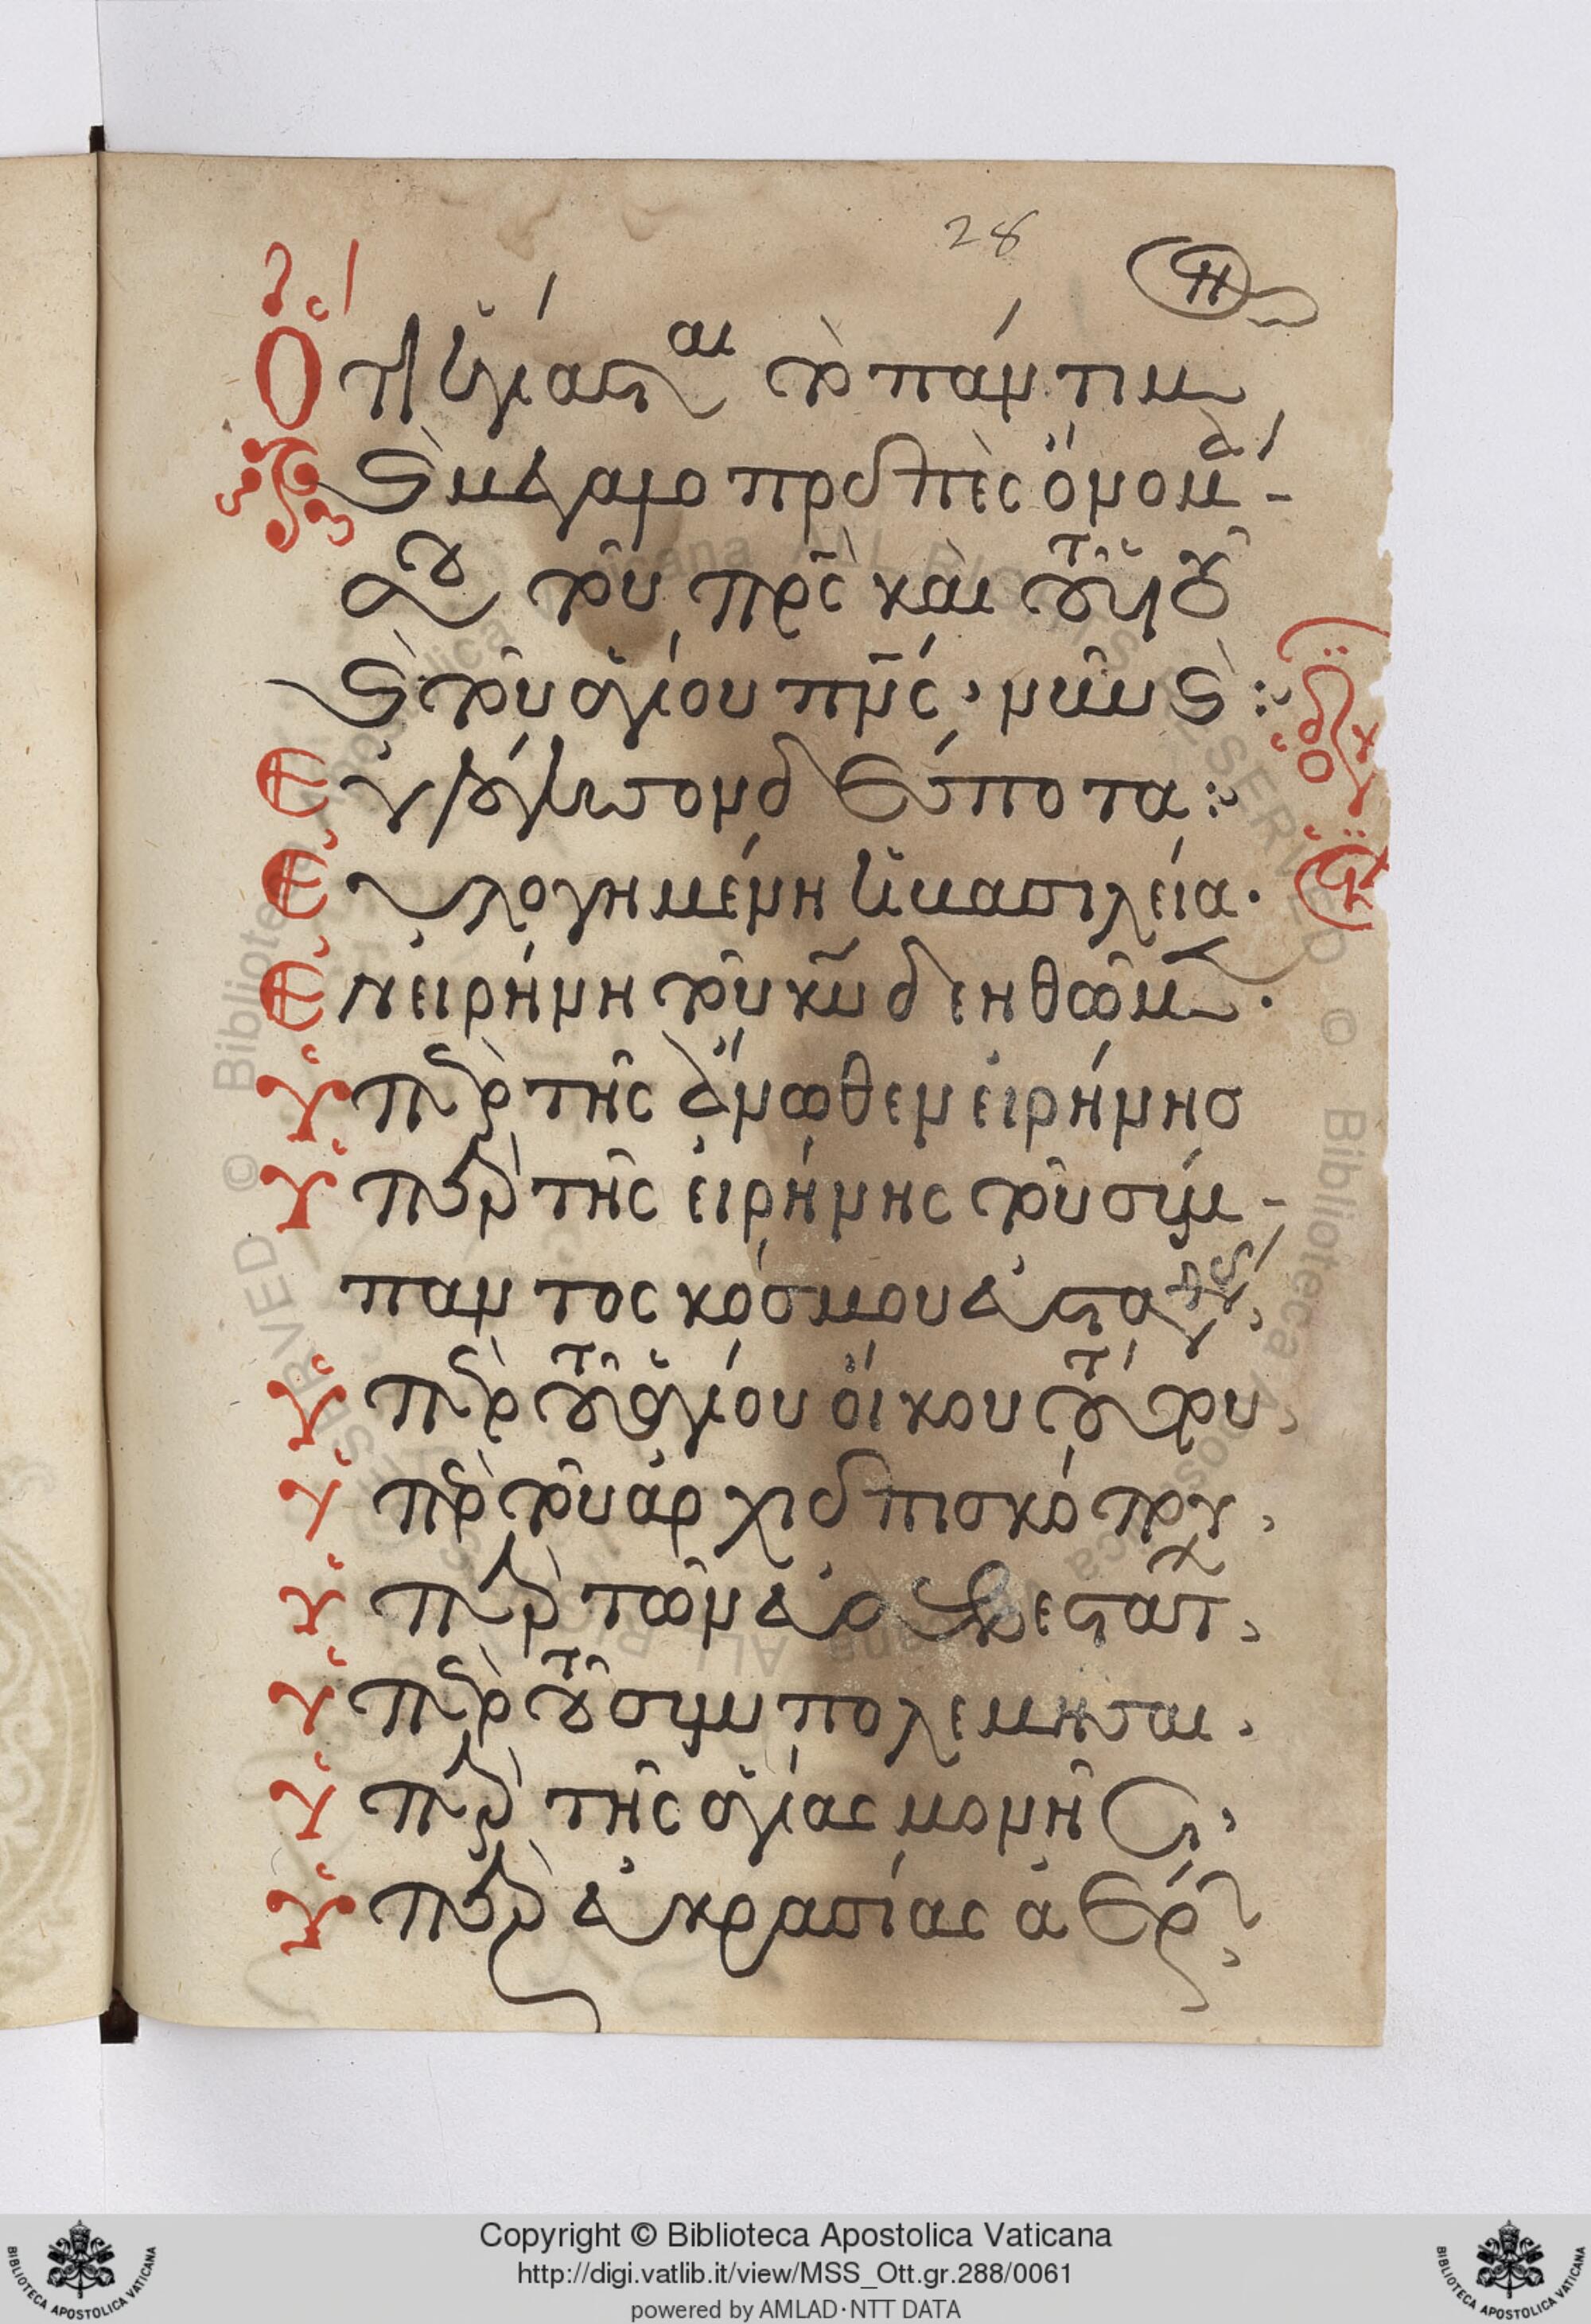 28
Ὅτι ἡγίασται τὸ πάντιμον
καὶ μεγαλοπρεπὲς ὄνομά
σου τοῦ πρς καὶ τοῦ υἱοῦ
καὶ τοῦ ἁγίου πνς· νῦν καὶ :
Εὐλόγησον δέσποτα :
Εὐλογημένη ἡ βασιλεία·
Ἐν εἰρήνη τοῦ κυ δεηθῶμεν·
Ὑπὲρ τῆς ἄνωθεν εἰρήνησ
Ὑπὲρ τῆς εἰρήνης τοῦ σύμ-
παντος κόσμου εὐσταθείας,
Ὑπὲρ τοῦ ἁγίου οἴκου τούτου,
Ὑπὲρ τοῦ ἀρχιεπισκόπου,
Ὑπὲρ τῶν εὐσεβεστάτ,
Ὑπὲρ τοῦ συμπολεμησαι,
Ὑπὲρ τῆς ἁγίας μονῆς,
Ὑπὲρ εὐκρασίας ἀέρων,
Copyright © Biblioteca Apostolica Vaticana
http://digi.vatlib.it/view/MSS_Ott.gr.288/0061
powered by AMLAD·NTT DATA
BIBLIOTECA APOSTOLICA VATICANA
BIBLIOTECA APOSTOLICA VATICANA